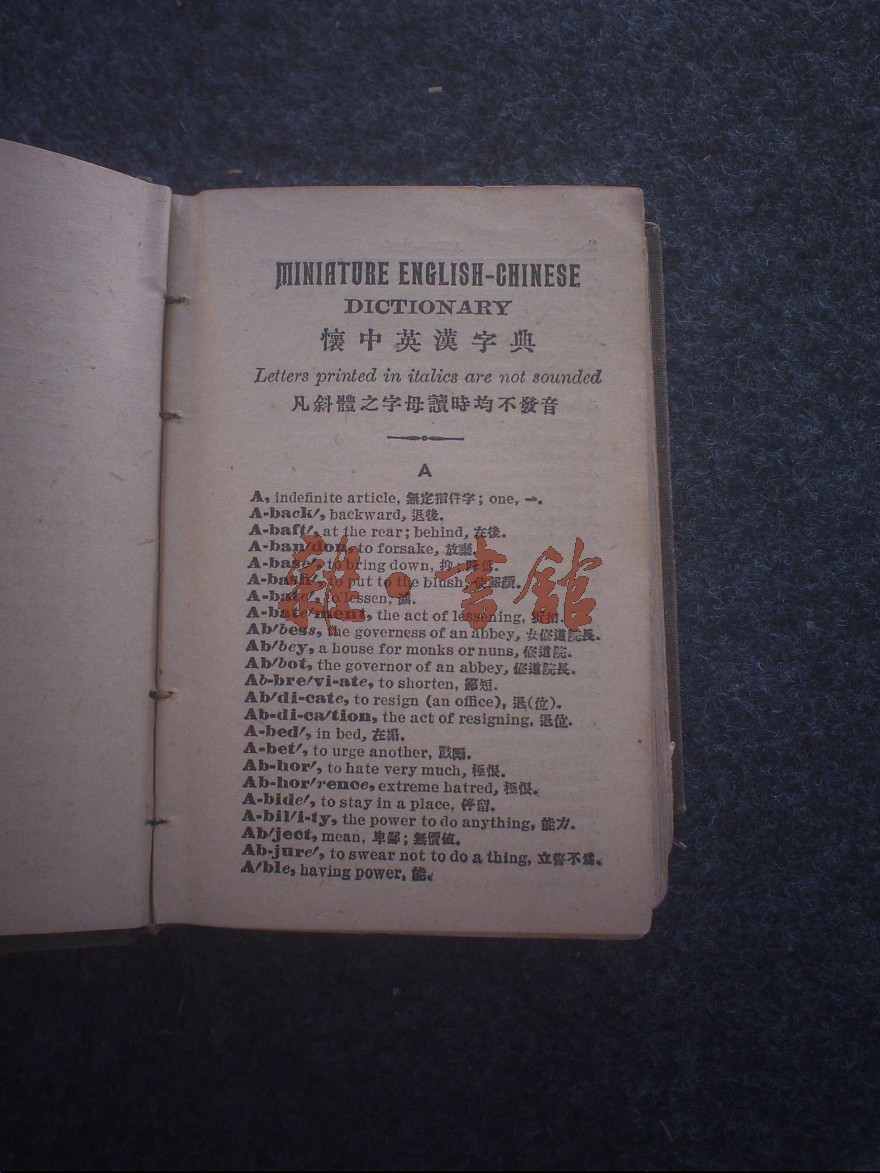 MINIATURE ENGLISH-CHINESE
DICTIONARY
懷中英漢字典
Letters printed in italics are not sounded
凡斜體之字母讀時均不發音
A
A, indefinite article, 無定指件字; one, 一.
A-back/, backward, 退後.
A-baft/, at the rear; behind, 在後.
A-ban/don, to forsake, 放棄.
A-base/, to bring down, 抑;
A-bash/, to put to the blush,
A-bate/, to lessen, 減.
A-bate/ment, the act of lessening,
Ab/bess, the governess of an abbey, 女修道院長.
Ab/bey, a house for monks or nuns, 修道院.
Ab/bot, the governor of an abbey, 修道院長.
Ab-bre/vi-ate, to shorten, 縮短.
Ab/di-cate, to resign (an office), 退(位).
Ab-di-ca/tion, the act of resigning, 退位.
A-bed/, in bed, 在榻.
A-bet/, to urge another, 鼓勵.
Ab-hor/, to hate very much, 極恨.
Ab-hor/rence, extreme hatred, 極恨.
A-bide/, to stay in a place, 停留.
A-bil/i-ty, the power to do anything, 能力.
Ab/ject, mean, 卑鄙; 無價値.
Ab-jure/, to swear not to do a thing, 立誓不爲.
A/ble, having power, 能.
雜·書館